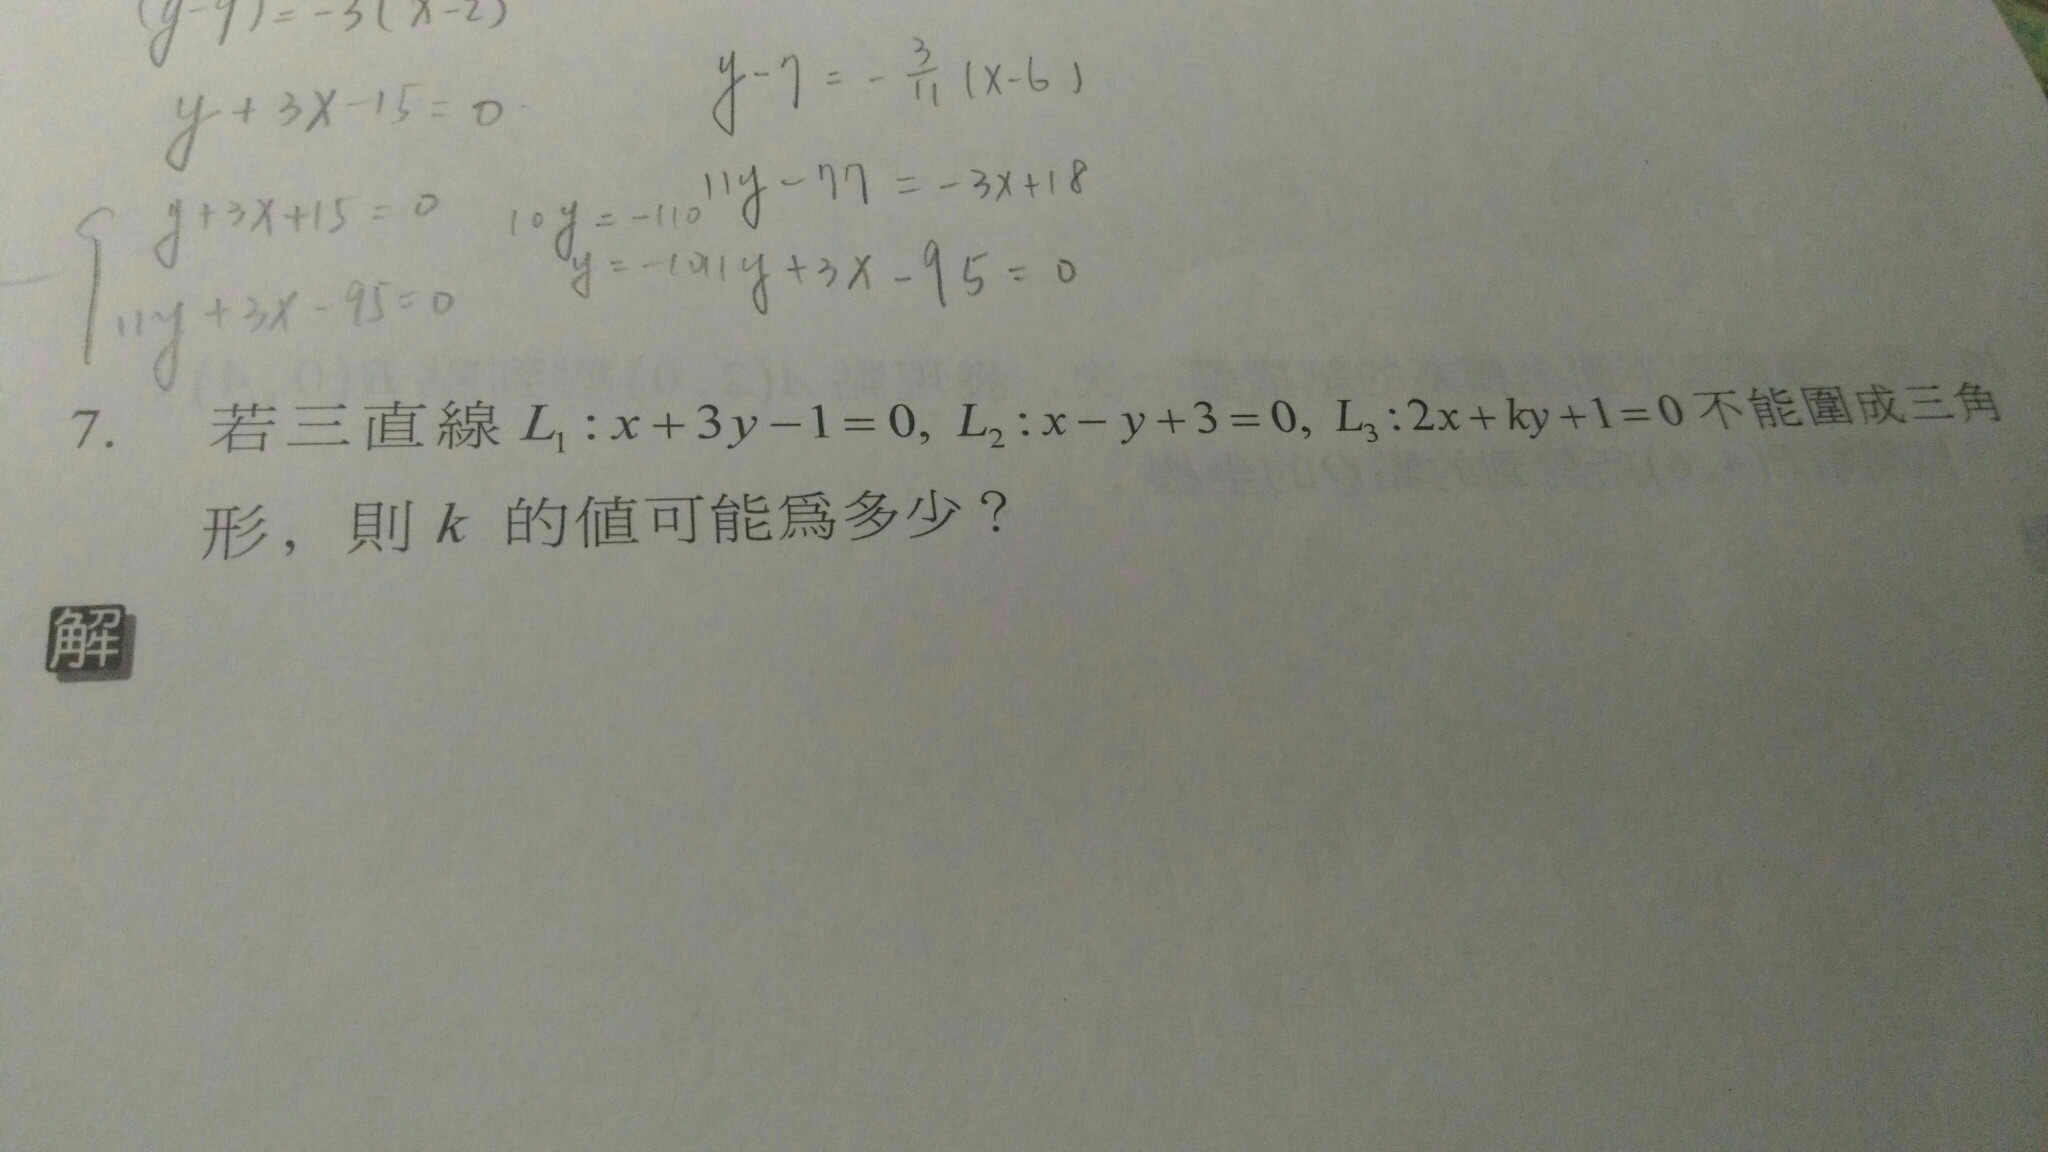 (y-9)=-3(x-2)
y+3x-15=0
y-7=-3/11(x-6)
11y-77=-3x+18
11y+3x-95=0
y+3x+15=0
11y+3x-95=0
10y=-110
7. 若三直線 L₁:x+3y-1=0, L₂:x-y+3=0, L₃:2x+ky+1=0 不能圍成三角
形，則 k 的值可能爲多少？
解